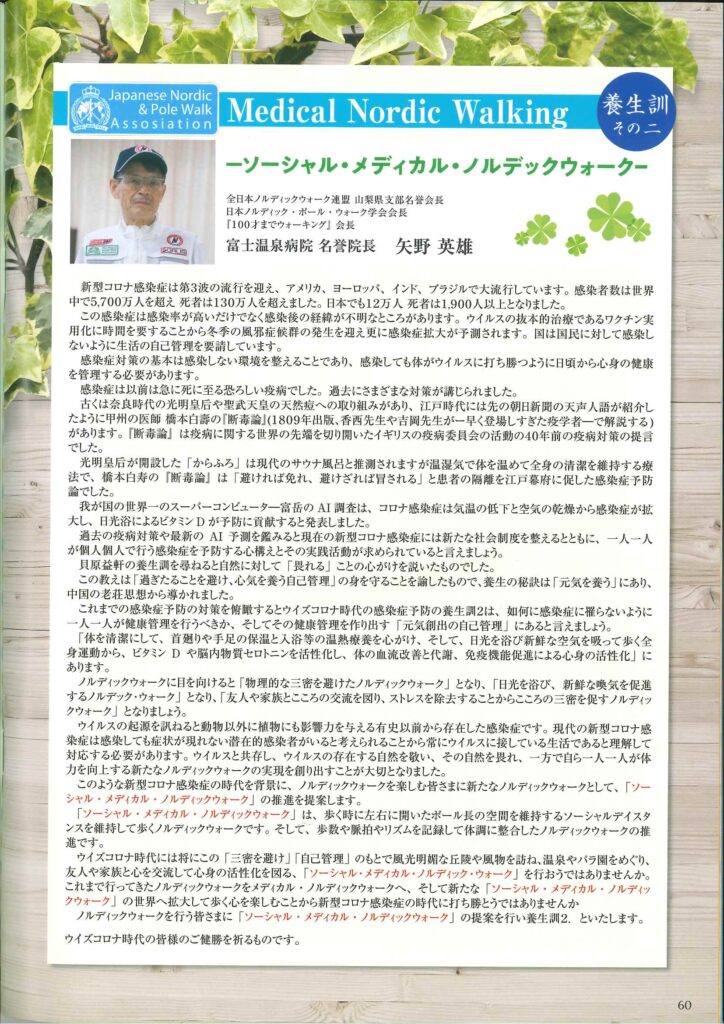 Japanese Nordic
& Pole Walk
Assosiation
Medical Nordic Walking
養生訓
その二
ーソーシャル・メディカル・ノルデックウォークー
全日本ノルディックウォーク連盟 山梨県支部名誉会長
日本ノルディック・ポール・ウォーク学会会長
『100才までウォーキング』会長
富士温泉病院 名誉院長 矢野 英雄
新型コロナ感染症は第3波の流行を迎え、アメリカ、ヨーロッパ、インド、ブラジルで大流行しています。感染者数は世界
中で5,700万人を超え 死者は130万人を超えました。日本でも12万人 死者は1,900人以上となりました。
この感染症は感染率が高いだけでなく感染後の経緯が不明なところがあります。ウイルスの抜本的治療であるワクチン実
用化に時間を要することから冬季の風邪症候群の発生を迎え更に感染拡大が予測されます。国は国民に対して感染し
ないように生活の自己管理を要請しています。
感染症対策の基本は感染しない環境を整えることであり、感染しても体がウイルスに打ち勝つように日頃から心身の健康
を管理する必要があります。
感染症は以前は急に死に至る恐ろしい疫病でした。過去にさまざまな対策が講じられました。
古くは奈良時代の光明皇后や聖武天皇の天然痘への取り組みがあり、江戸時代には先の朝日新聞の天声人語が紹介し
たように甲州の医師 橋本白壽の『断毒論』(1809年出版、香西先生や吉岡先生が一早く登場しすぎた疫学者一で解説する)
があります。『断毒論』は疫病に関する世界の先端を切り開いたイギリスの疫病委員会の活動の40年前の疫病対策の提言
でした。
光明皇后が開設した「からふろ」は現代のサウナ風呂と推測されますが温湿気で体を温めて全身の清潔を維持する療
法で、橋本白寿の『断毒論』は「避ければ免れ、避けざれば冒される」と患者の隔離を江戸幕府に促した感染症予防
論でした。
我が国の世界一のスーパーコンピューター富岳の AI 調査は、コロナ感染症は気温の低下と空気の乾燥から感染症が拡
大し、日光浴によるビタミン D が予防に貢献すると発表しました。
過去の疫病対策や最新の AI 予測を鑑みると現在の新型コロナ感染症には新たな社会制度を整えるとともに、一人一人
が個人個人で行う感染症を予防する心構えとその実践活動が求められていると言えましょう。
貝原益軒の養生訓を尋ねると自然に対して「畏れる」ことの心がけを説いたものでした。
この教えは「過ぎたることを避け、心気を養う自己管理」の身を守ることを諭したもので、養生の秘訣は「元気を養う」にあり、
中国の老荘思想から導かれました。
これまでの感染症予防の対策を俯瞰するとウイズコロナ時代の感染症予防の養生訓2は、如何に感染症に罹らないように
一人一人が健康管理を行うべきか、そしてその健康管理を作り出す「元気創出の自己管理」にあると言えましょう。
「体を清潔にして、首廻りや手足の保温と入浴等の温熱療養を心がけ、そして、日光を浴び新鮮な空気を吸って歩く全
身運動から、ビタミン D や脳内物質セロトニンを活性化し、体の血流改善と代謝、免疫機能促進による心身の活性化」に
あります。
ノルディックウォークに目を向けると「物理的な三密を避けたノルディックウォーク」となり、「日光を浴び、新鮮な喚気を促進
するノルデック・ウォーク」となり、「友人や家族とこころの交流を図り、ストレスを除去することからこころの三密を促すノルディッ
クウォーク」となりましょう。
ウイルスの起源を訊ねると動物以外に植物にも影響力を与える有史以前から存在した感染症です。現代の新型コロナ感
染症は感染しても症状が現れない潜在的感染者がいると考えられることから常にウイルスに接している生活であると理解して
対応する必要があります。ウイルスと共存し、ウイルスの存在する自然を敬い、その自然を畏れ、一方で自ら一人一人が体
力を向上する新たなノルディックウォークの実現を創り出すことが大切となりました。
このような新型コロナ感染症の時代を背景に、ノルディックウォークを楽しむ皆さまに新たなノルディックウォークとして、「ソー
シャル・メディカル・ノルディックウォーク」の推進を提案します。
「ソーシャル・メディカル・ノルディックウォーク」は、歩く時に左右に開いたポール長の空間を維持するソーシャルデイスタ
ンスを維持して歩くノルディックウォークです。そして、歩数や脈拍やリズムを記録して体調に整合したノルディックウォークの推
進です。
ウイズコロナ時代には将にこの「三密を避け」「自己管理」のもとで風光明媚な丘陵や風物を訪ね、温泉やバラ園をめぐり、
友人や家族と心を交流して心身の活性化を図る、「ソーシャル・メディカル・ノルディック・ウォーク」を行おうではありませんか。
これまで行ってきたノルディックウォークをメディカル・ノルディックウォークへ、そして新たな「ソーシャル・メディカル・ノルディッ
クウォーク」の世界へ拡大して歩く心を楽しむことから新型コロナ感染症の時代に打ち勝とうではありませんか
ノルディックウォークを行う皆さまに「ソーシャル・メディカル・ノルディックウォーク」の提案を行い養生訓2．といたします。
ウイズコロナ時代の皆様のご健勝を祈るものです。
60